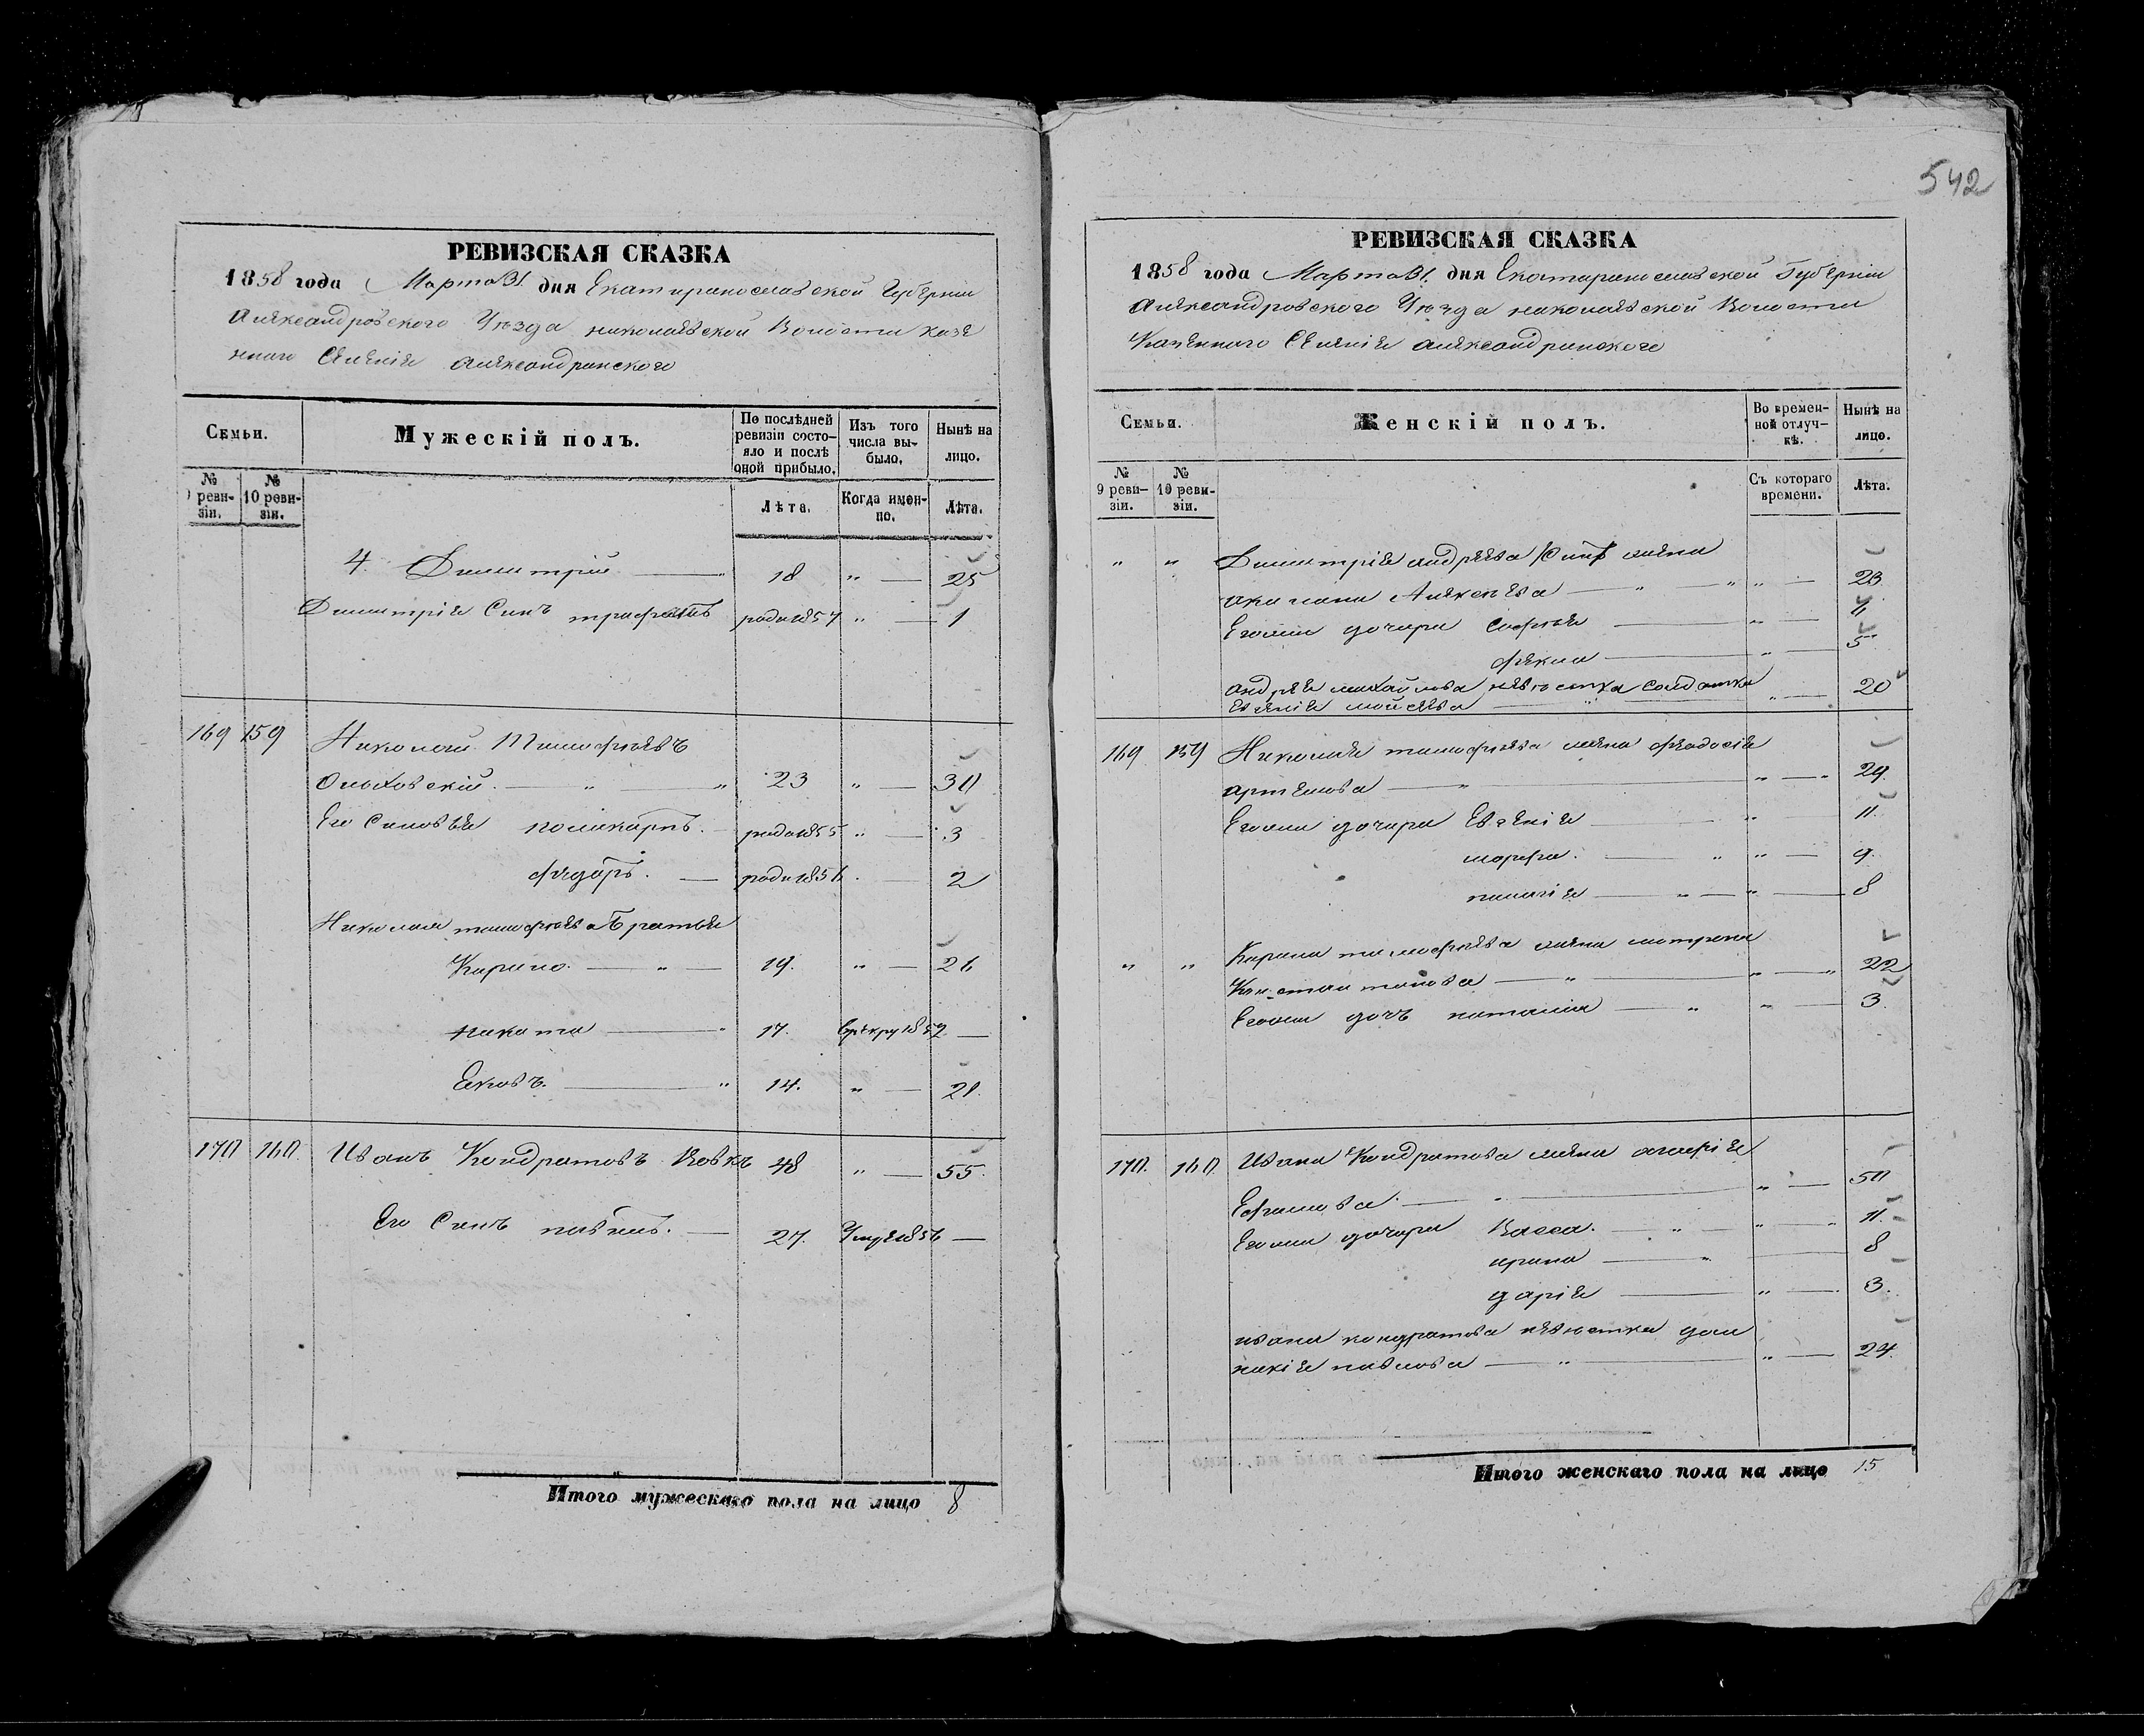 542
РЕВИЗСКАЯ СКАЗКА
1858 года Марта 31 дня Екатиринославской Губернии
Александровского Уѣзда николаевской Волости казе
ннаго Селеніе Александринского
Семьи.
Мужескій полъ.
По послѣдней ревизіи состояло и послѣ оной прибыло.
Изъ того числа выбыло,
Нынѣ на лицо.
№ 9 ревизіи.
№ 10 ревизіи.
Лѣта.
Когда именно.
Лѣта.
4. Димитрій 18 " — 25
Димитрія Синъ трофимъ роди 1857 " — 1
169 159 Николай Тимофѣевъ
Ольховскій. " " 23 " — 30
Его Синовья поликарпъ. роди 1855 " — 3
фѣдоръ. — роди 1856 . — 2
Николая тимофѣева Братья
Кирило. — " — 19. " — 26
никита — " 17. Врекру 1852 —
Ековъ. — " 14. " — 21.
170 160. Иванъ Кондратовъ Вовкъ 48 " — 55.
Его Синъ павелъ. — 27. Умре 1856 —
Итого мужескаго пола на лицо 8
РЕВИЗСКАЯ СКАЗКА
1858 года Марта 31. дня Екатириннославской Губерніи
Александровского Уѣзда николаевской Волости
Казенного Селеніе Александринского
Семьи.
Женскій полъ.
Во временной отлучкѣ.
Нынѣ на лицо.
№ 9 ревизіи.
№ 10 ревизіи.
Съ котораго времени.
Лѣта.
" " Димитрія андреева жена
акилина Алексѣева — " " " — 23.
Егоже дочири Софья — " — 6
фекла — " — 5
Андрея михайлова невѣстка солдатка
Евгенія мойсеева — " " — 20
169 159 Николая тимофѣева жена феодосія
артемова — " " — " 29.
Егоже дочири Евгенія — " 11.
марфа. — " " — 9.
палагія — " — " — 8
" " Кирила тимофѣева жена мотрона
Константинова — " " — " 22
Егоже дочъ наталія — " " — 3.
170. 160. Ивана Кондратова жена агафія
Ефимова. — " " — 50
Егоже дочири Васса. — " — " — " 11.
ирина — " 8
дарія — " — 3.
ивана кондратова невѣстка дом
никія павлова — " " — 24.
Итого женскаго пола на лицо 15